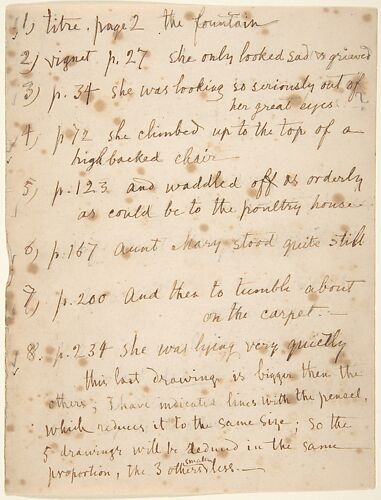 1) titre. page 2 the fountain
2) vignet p. 27 she only looked sad & grieved
3) p. 34 she was looking so seriously out of
her great eyes
4) p 72 she climbed up to the top of a
highbacked chair
5) p. 123 and waddled off as orderly
as could be to the poultry house
6) p. 167 Aunt Mary stood quite still
7) p. 200 And then to tumble about
on the carpet.
8. p. 234 She was lying very quietly
this last drawing is bigger then the
others; I have indicated lines with the pensel,
which reduces it to the same size; so the
5 drawings will be in the same
smaller
proportion, the 3 others less.